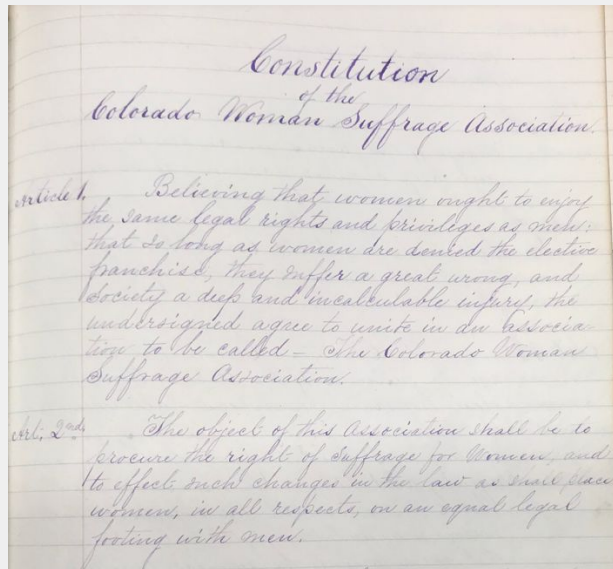 Constitution
of the
Colorado Woman Suffrage Association.
Article 1. Believing that women ought to enjoy
the same legal rights and privileges as men;
that so long as women are denied the elective
franchise, they suffer a great wrong, and
society a deep and incalculable injury, the
undersigned agree to unite in an associa-
tion to be called – The Colorado Woman
Suffrage Association.
Art. 2nd The object of this Association shall be to
procure the right of suffrage for Women, and
to effect such changes in the law as shall place
women, in all respects, on an equal legal
footing with men.